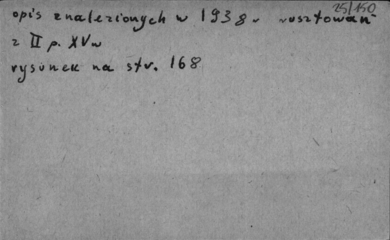 25/150
opis znalezionych w 1938 r rusztowań
z II p. XV w
rysunek na str. 168